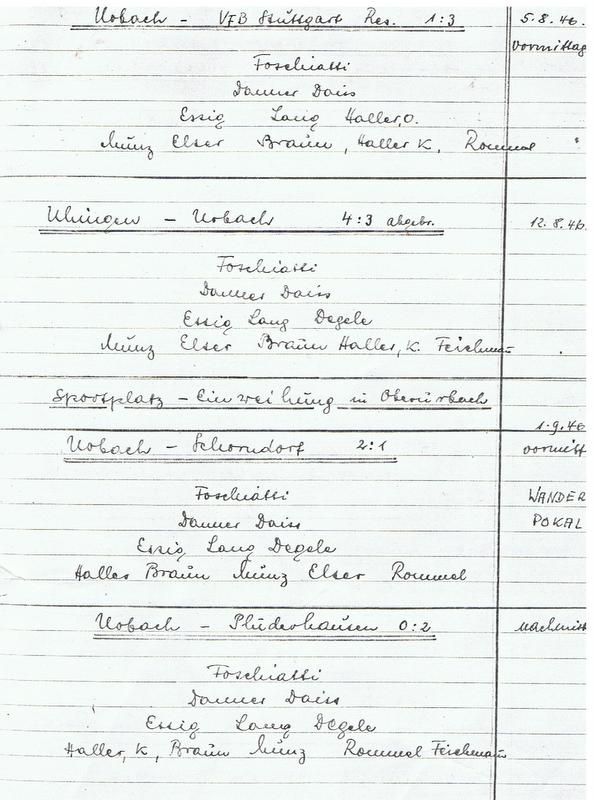 Urbach - VfB Stuttgart Res. 1:3 5.8.46.
vormittag
Foschiatti
Danner Daiss
Essig Lang Haller, O.
Münz Elser Braun, Haller K, Rommel
Uhingen - Urbach 4:3 abgebr. 12.8.46.
Foschiatti
Danner Daiss
Essig Lang Degele
Münz Elser Braun Haller, K. Feichmau
Sportplatz - Einweihung in Oberurbach
1.9.46
Urbach - Schorndorf 2:1 vormitt
Foschiatti WANDER
Danner Daiss POKAL
Essig Lang Degele
Haller Braun Münz Elser Rommel
Urbach - Plüderhausen 0:2 nachmitt
Foschiatti
Danner Daiss
Essig Lang Degele
Haller, K, Braun Münz Rommel